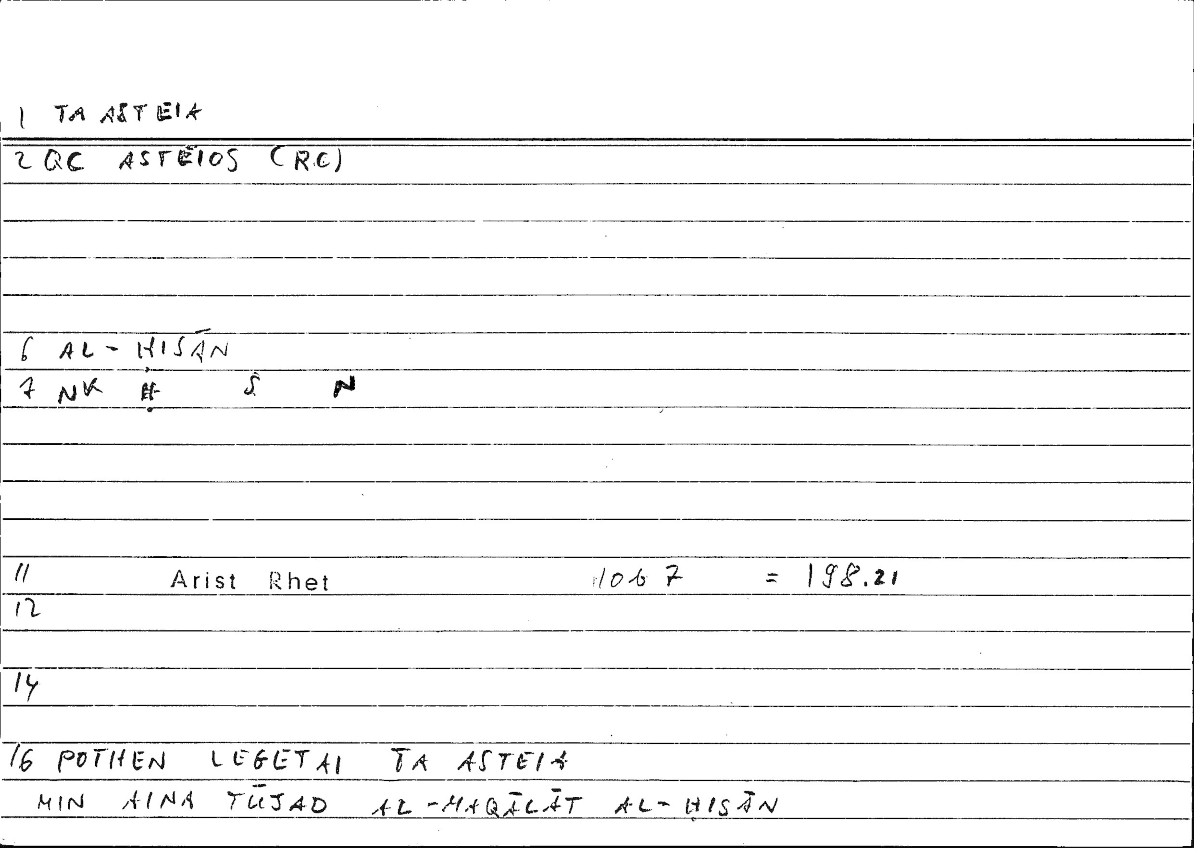 1 TA ASTEIA
2 QC ASTEĪOS (RC)
6 AL-ḤISĀN
7 NK Ḥ S N
11 Arist Rhet 10b 7 = 198.21
12
14
16 POTHEN LEGETAI TA ASTEIA
MIN AINA TŪJAD AL-MAQĀLĀT AL-ḤISĀN